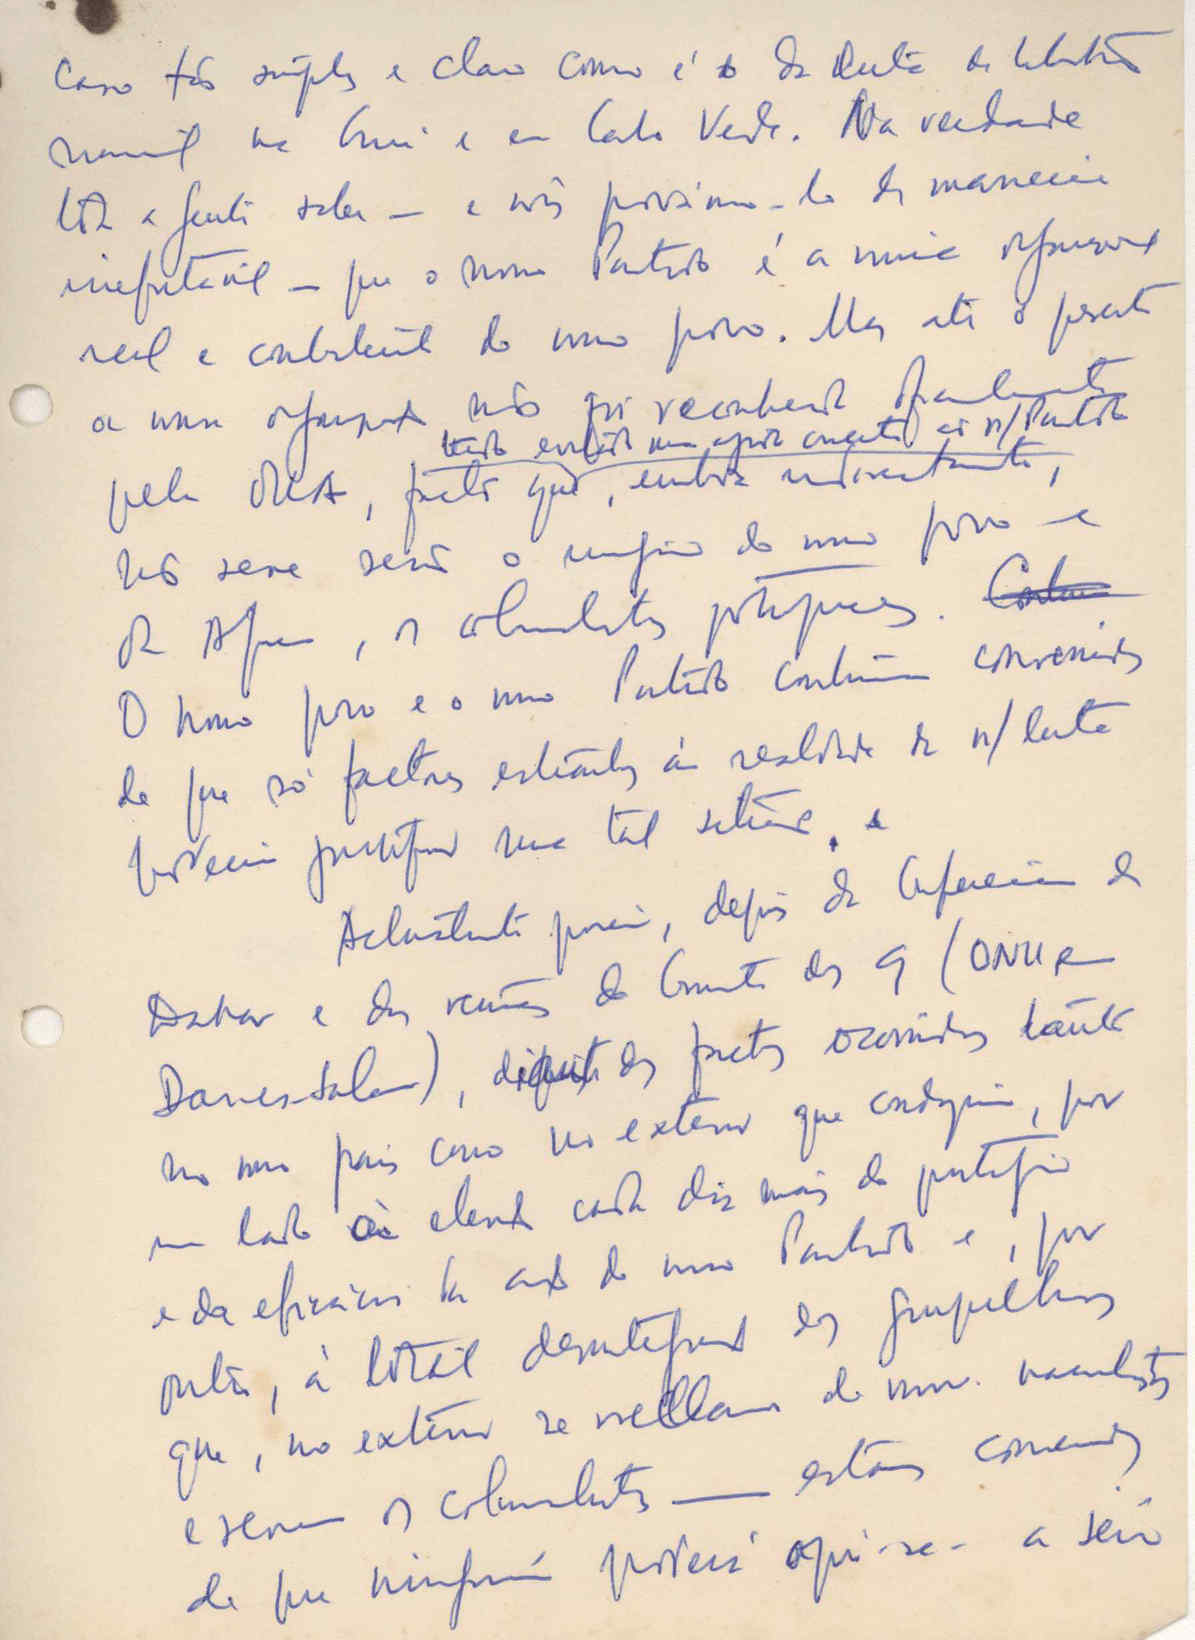 caso tão simples e claro como é o da luta de libertação
nacional na Guiné e em Cabo Verde. Na verdade
toda a gente sabe — e nós provámo-lo de maneira
irrefutável — que o nosso Partido é a única organização
real e combatente do nosso povo. Mas até o presente
a nossa organização não foi reconhecida oficialmente
tendo evitado um apoio concreto ao n/Partido
pela OUA, facto que, embora indirectamente,
não serve senão o inimigo do nosso povo — e
da África, os colonialistas portugueses.
O nosso povo e o nosso Partido continuam convencidos
de que só factores estranhos à realidade da n/ luta
podem justificar uma tal situação.
Actualmente porém, depois da Conferência de
Dakar e das reuniões do Comité dos 9 (ONU em
Dar-es-Salam), diante dos factos ocorridos tanto
no nosso país como no exterior que conduziram, por
um lado à elevação cada dia mais do prestígio
e da eficácia da acção do nosso Partido e, por
outro, à total desintegração dos grupelhos
que, no exterior se reclamam do mov. nacionalista
e servem os colonialistas — estamos convencidos
de que ninguém poderá opôr-se a sério